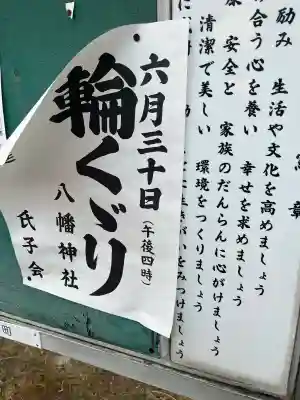 六月三十日(午後四時)
輪くゞり
八幡神社
氏子会
章
励み 生活や文化を高めましょう
合う心を養い 幸せを求めましょう
安全と 家族のだんらんに心がけましょう
清潔で美しい 環境をつくりましょう
生きがいをみつけましょう
町